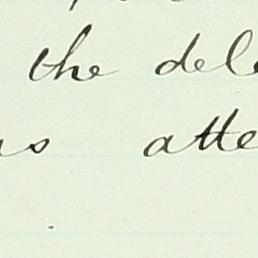 the dele
as atte